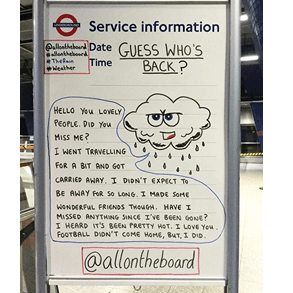 UNDERGROUND
Service information
@allontheboard
#allontheboard
#TheRain
#Weather
Date
Time
GUESS WHO'S
BACK?
HELLO YOU LOVELY
PEOPLE. DID YOU
MISS ME?
I WENT TRAVELLING
FOR A BIT AND GOT
CARRIED AWAY. I DIDN'T EXPECT TO
BE AWAY FOR SO LONG. I MADE SOME
WONDERFUL FRIENDS THOUGH. HAVE I
MISSED ANYTHING SINCE I'VE BEEN GONE?
I HEARD IT'S BEEN PRETTY HOT. I LOVE YOU.
FOOTBALL DIDN'T COME HOME, BUT, I DID.
@allontheboard